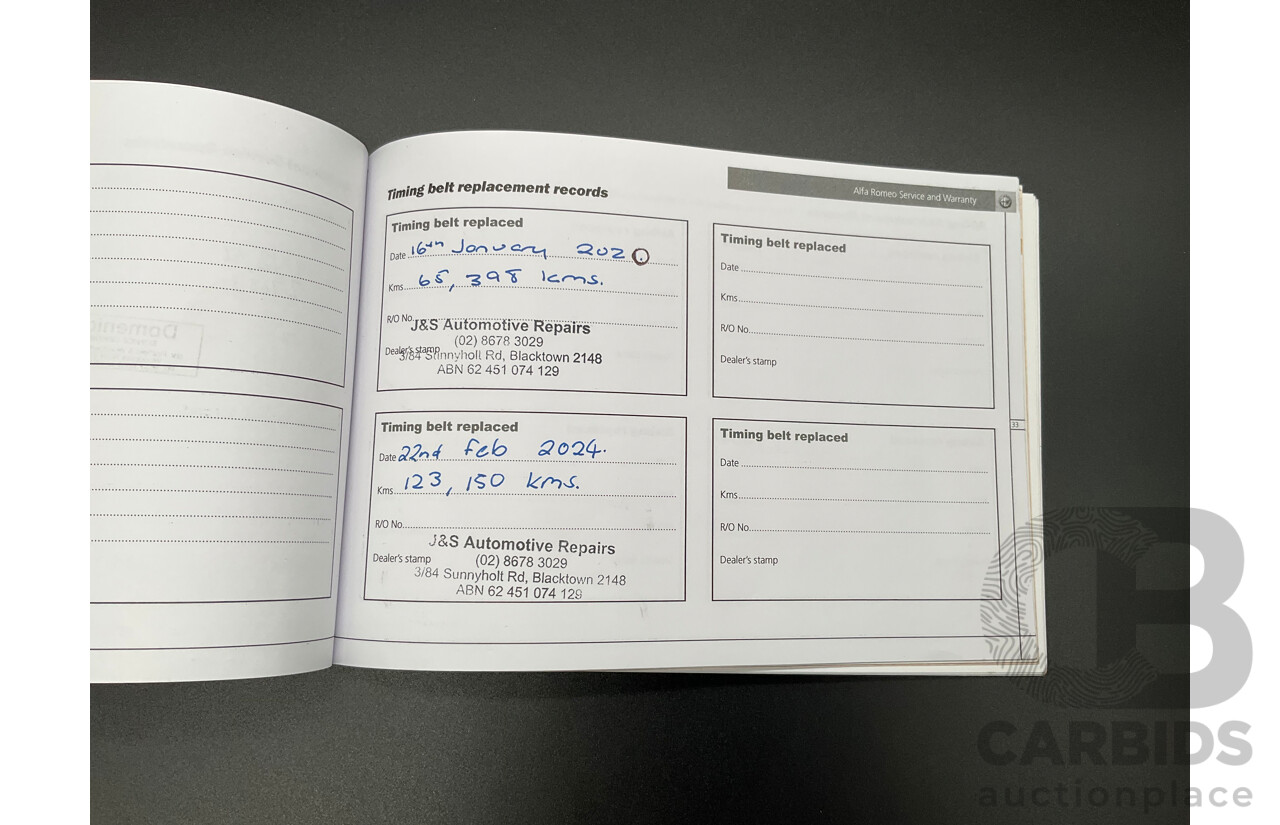 Timing belt replacement records
Alfa Romeo Service and Warranty
Timing belt replaced
Date 16th January 2020
Kms 65, 398 kms.
R/O No.
J&S Automotive Repairs
(02) 8678 3029
Dealer's stamp
3/84 Sunnyholt Rd, Blacktown 2148
ABN 62 451 074 129
Timing belt replaced
Date
Kms
R/O No.
Dealer's stamp
33
Timing belt replaced
Date 22nd Feb 2024.
Kms 123, 150 kms.
R/O No.
J&S Automotive Repairs
Dealer's stamp
(02) 8678 3029
3/84 Sunnyholt Rd, Blacktown 2148
ABN 62 451 074 129
Timing belt replaced
Date
Kms
R/O No.
Dealer's stamp
CB
CARBIDS
auctionplace